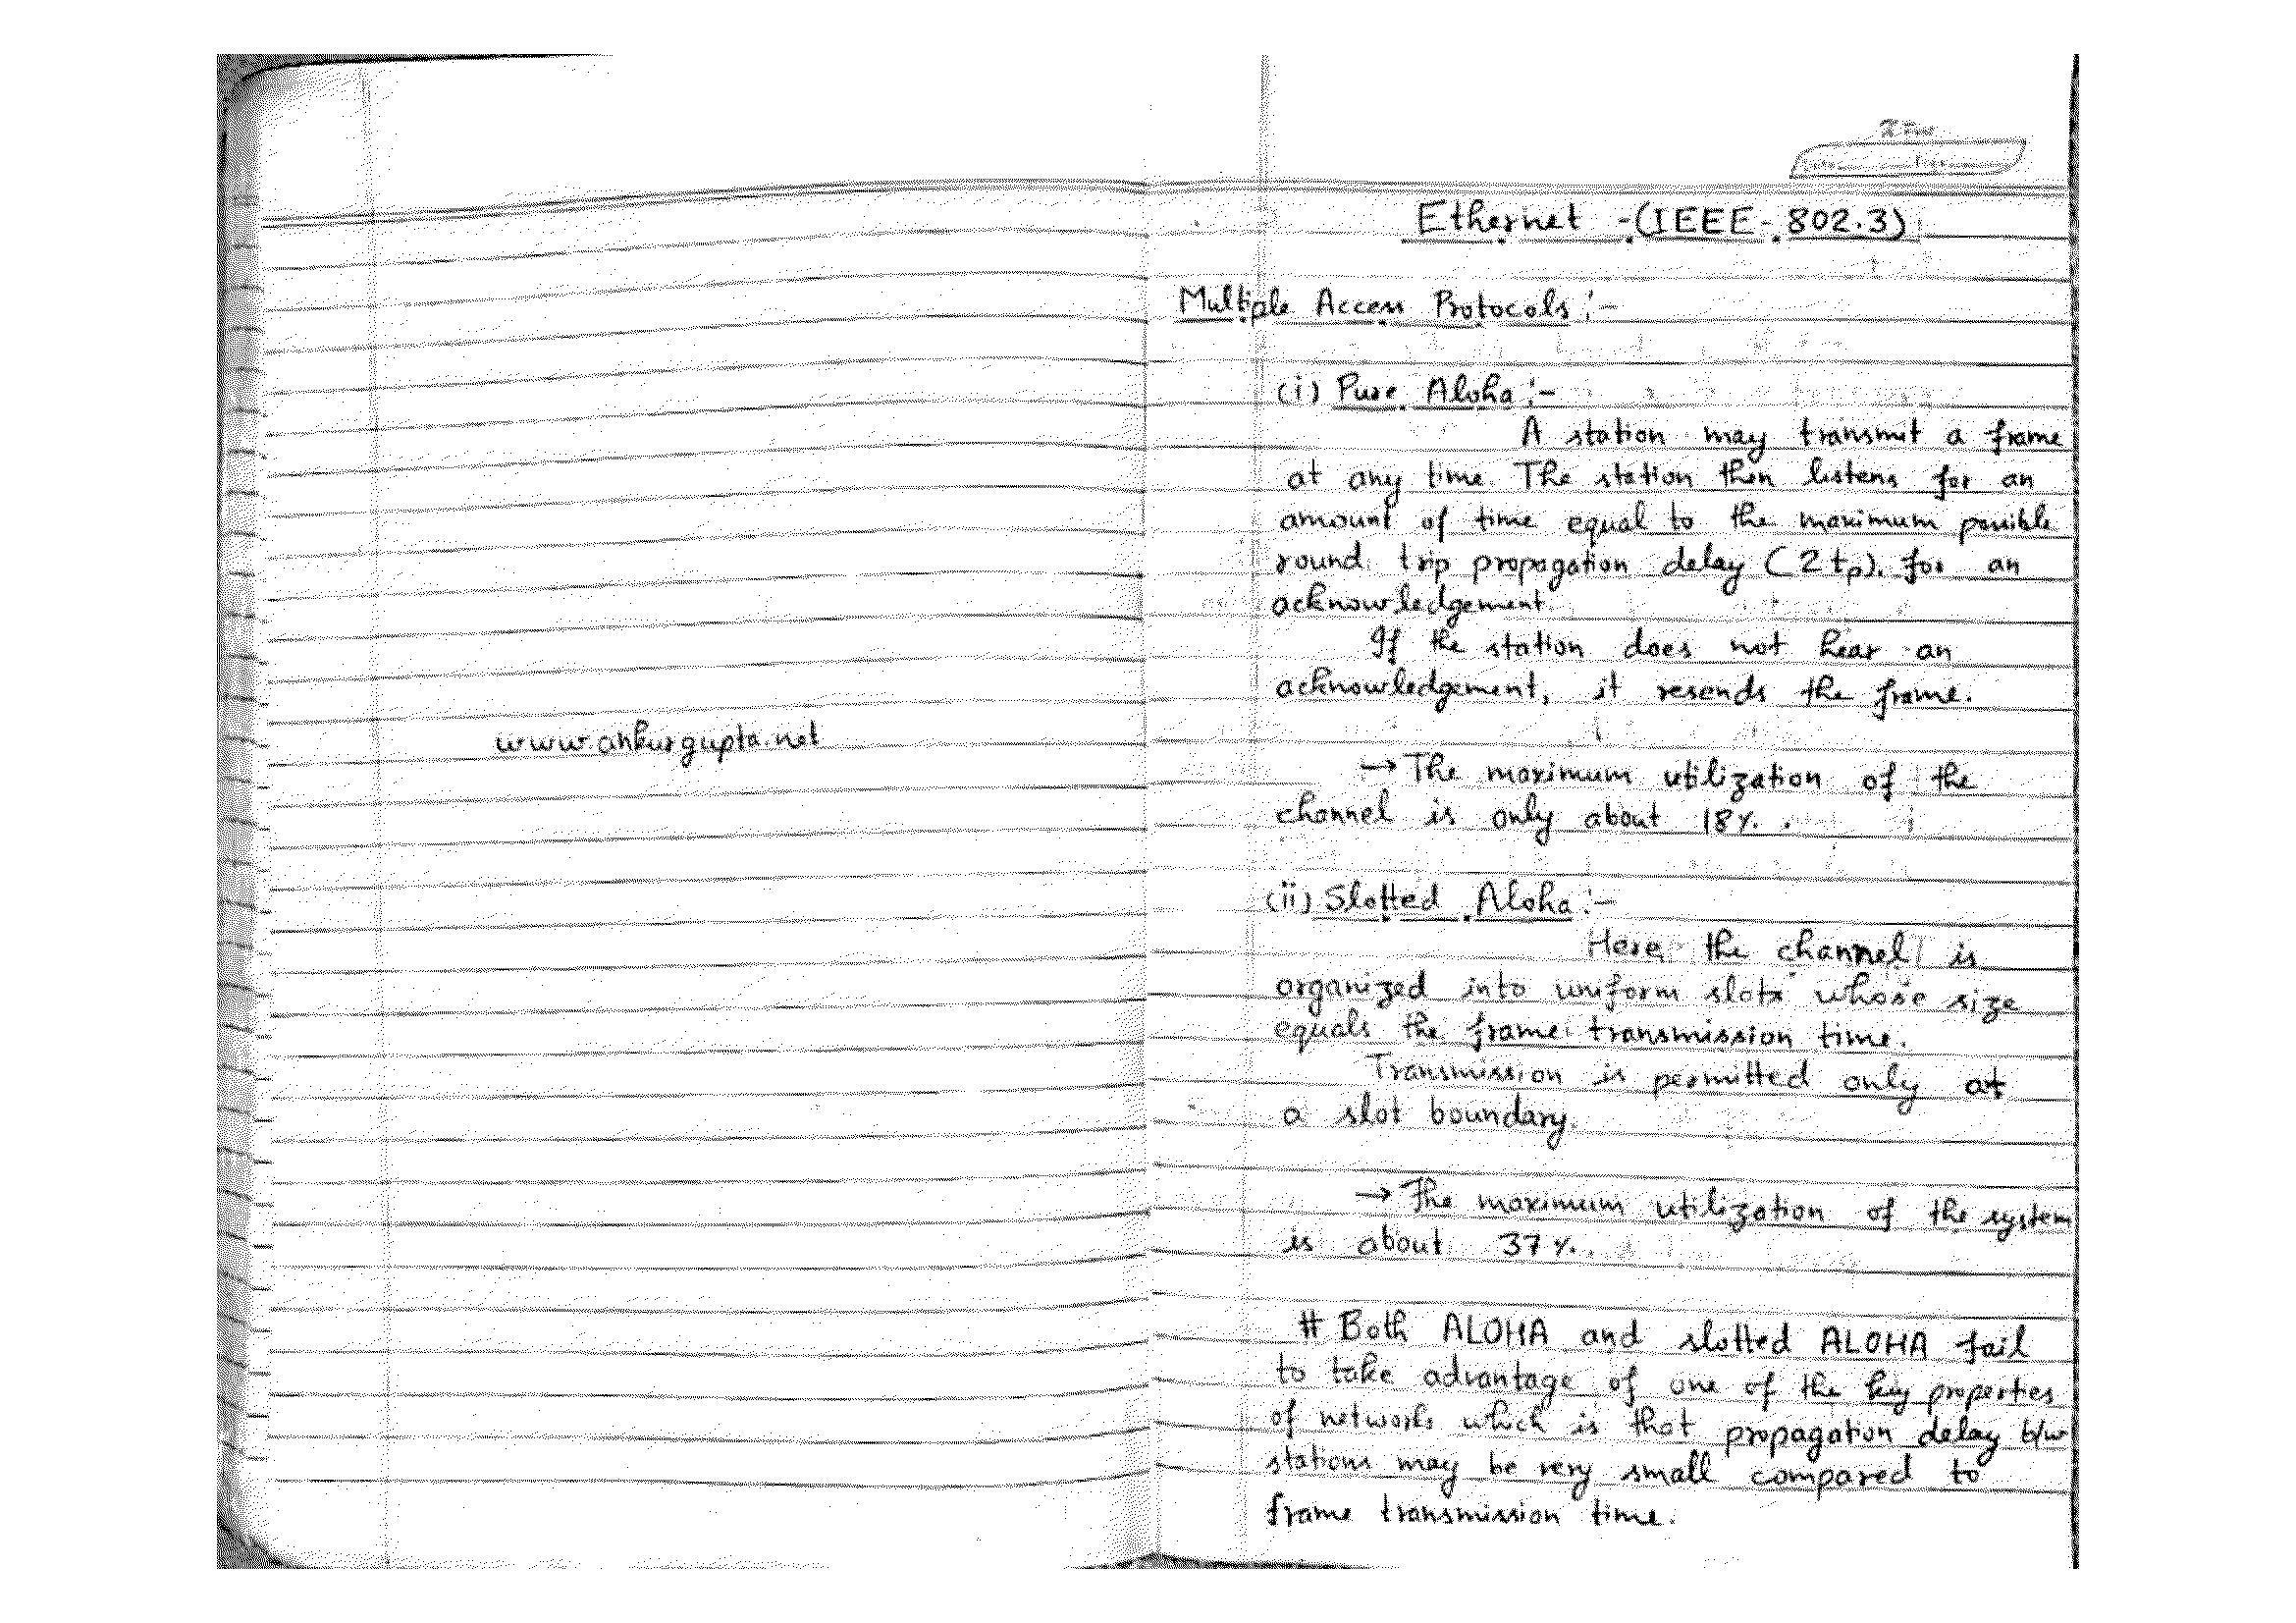 www.ankurgupta.net
Ethernet -(IEEE- 802.3)
Multiple Access Protocols :-
(i) Pure Aloha :-
A station may transmit a frame
at any time. The station then listens for an
amount of time equal to the maximum possible
round trip propagation delay (2tp). for an
acknowledgement.
If the station does not hear an
acknowledgement, it resends the frame.
→ The maximum utilization of the
channel is only about 18%.
(ii) Slotted Aloha :-
Here the channel is
organized into uniform slots whose size
equals the frame transmission time.
Transmission is permitted only at
a slot boundary.
→ The maximum utilization of the system
is about 37%.
# Both ALOHA and slotted ALOHA fail
to take advantage of one of the key properties
of networks which is that propagation delay b/w
stations may be very small compared to
frame transmission time.